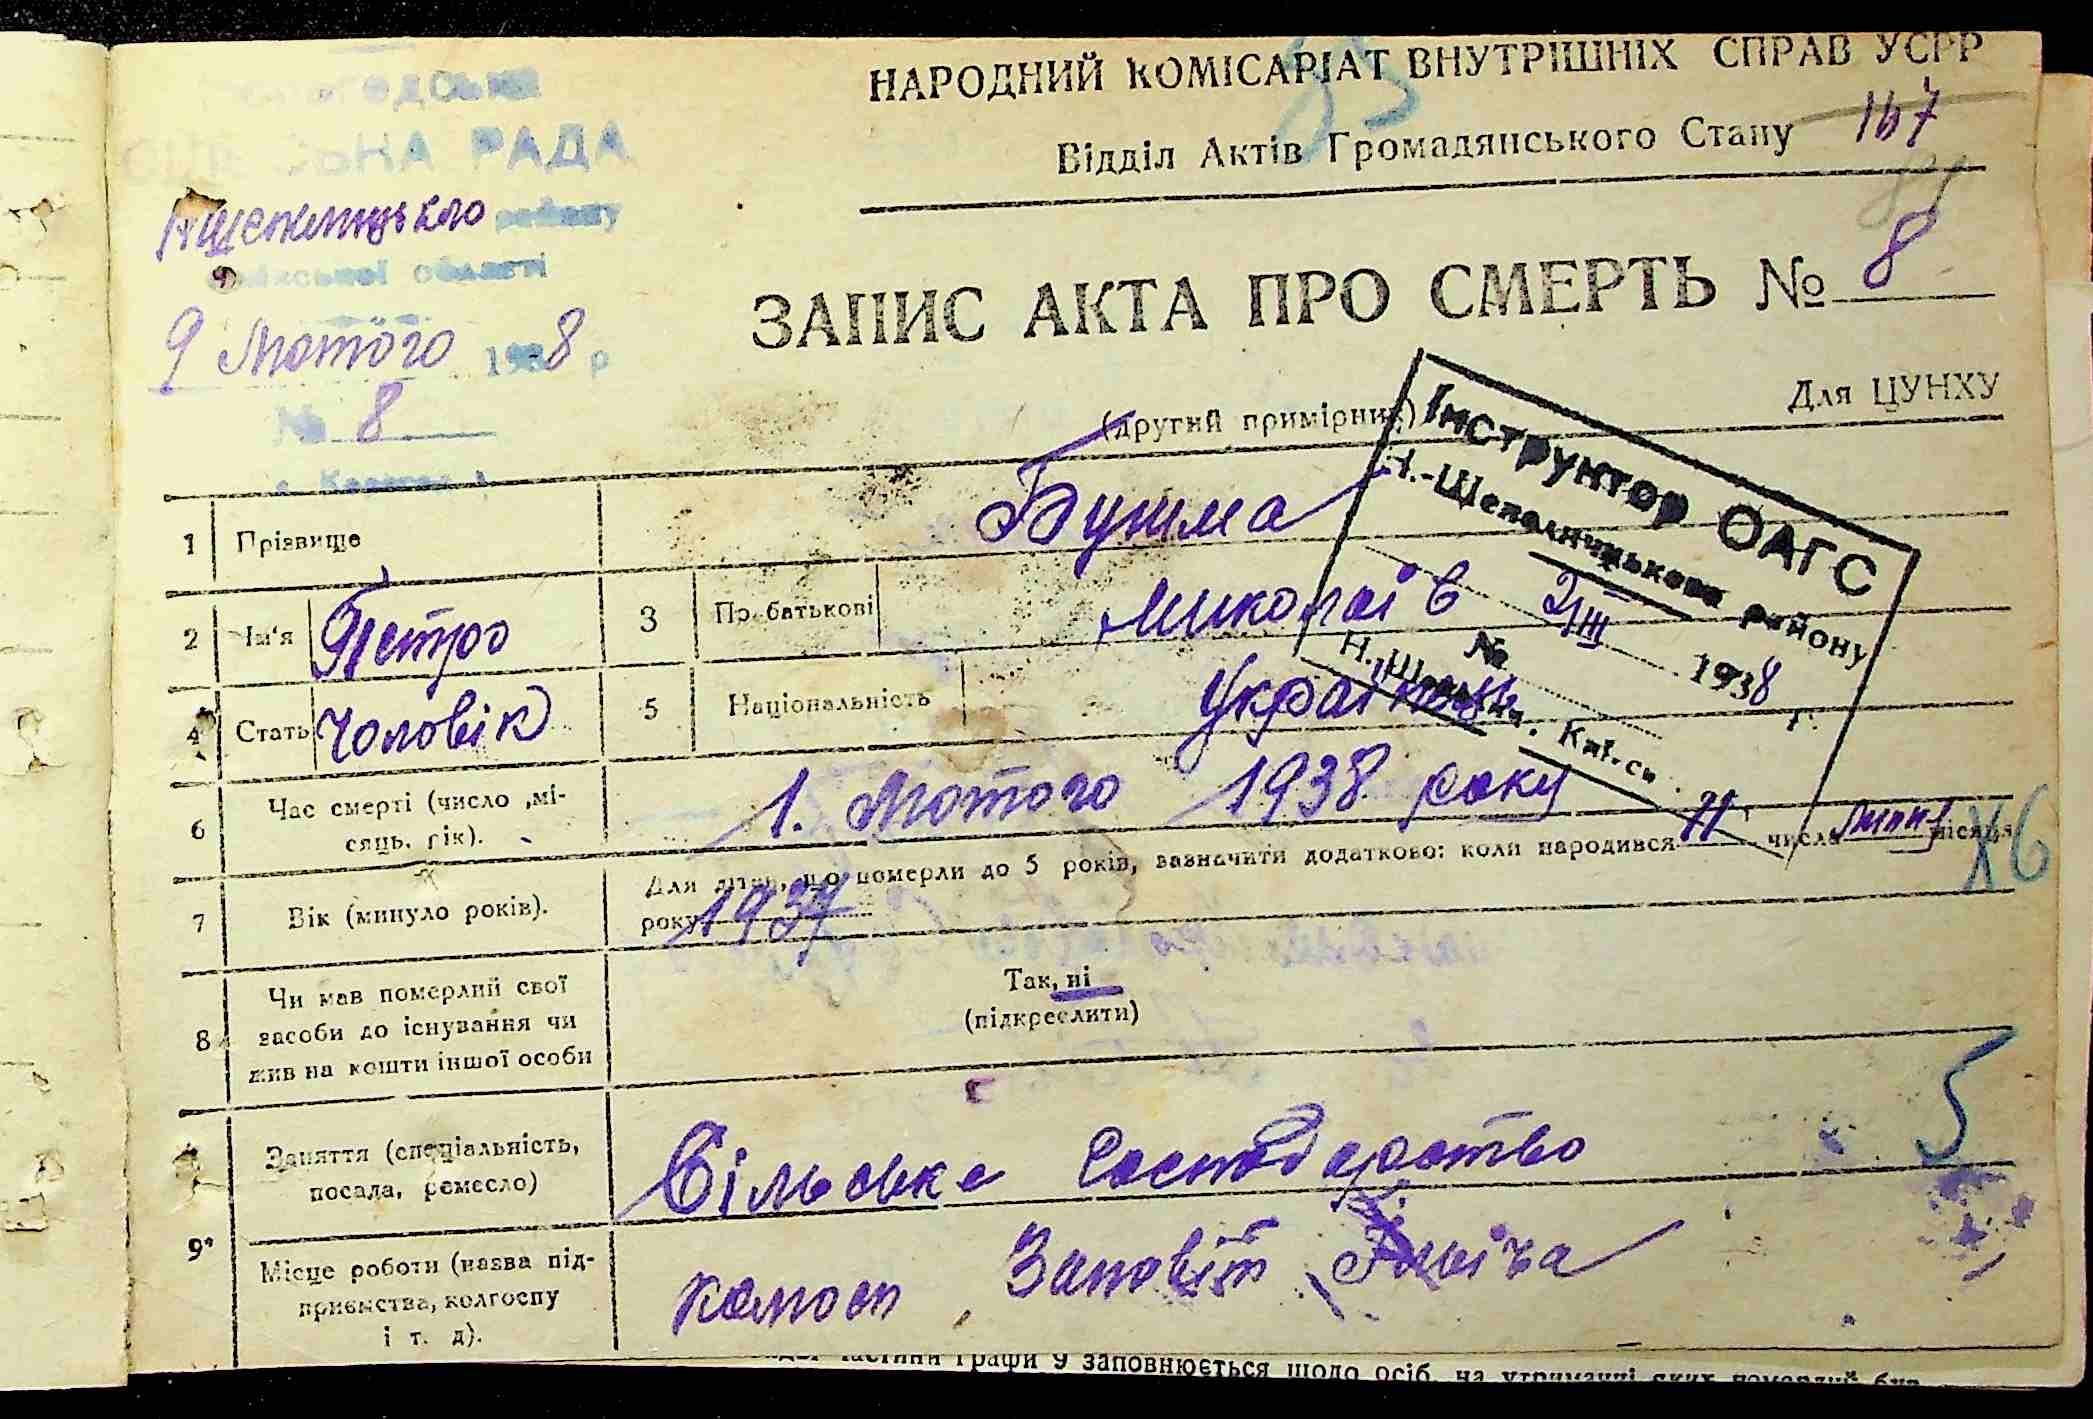 НАРОДНИЙ КОМІСАРІАТ ВНУТРІШНІХ СПРАВ УСРР
Відділ Актів Громадянського Стану 167
РАДА
району
області
9 Лютого 1938 р
№ 8
ЗАПИС АКТА ПРО СМЕРТЬ № 8
Для ЦУНХУ
(другий примірник)
Інструктор ОАГС
Н.-Шепелицького району
2/III 1938 г.
№
1 Прізвище Бушма
2 Ім'я Петро 3 По батькові Миколаїв
4 Стать Чоловік 5 Національність Українець
6 Час смерті (число, мі-
сяць, рік). 1. Лютого 1938 року
7 Вік (минуло років). Для дітей, що померли до 5 років, зазначити додатково: коли народився 11 числа липня місяця
року 1937
Х6
8 Чи мав померлий свої
засоби до існування чи
жив на кошти іншої особи
Так, ні
(підкреслити)
5
9 Заняття (спеціальність,
посада, ремесло) Сільське Господарство
Місце роботи (назва під-
приємства, колгоспу
і т. д). колгосп Заповіт Ілліча
частини графи 9 заповнюється щодо осіб, на утриманні яких померлий був